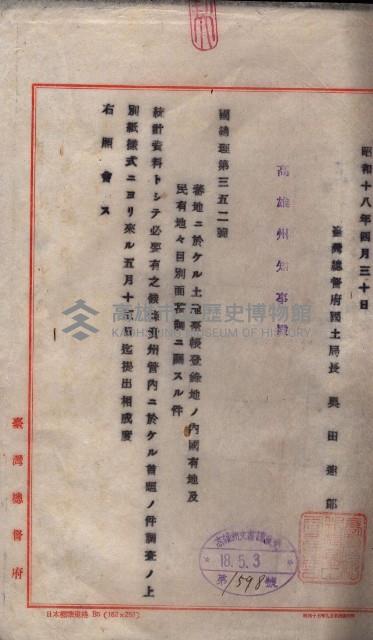 昭和十八年四月三十日
臺灣總督府國土局長 奥田達郎
高雄州知事殿
國總理第三五二號
蕃地ニ於ケル土地臺帳登錄地ノ內國有地及
民有地々目別面積調ニ關スル件
統計資料トシテ必要有之候條貴州管內ニ於ケル首題ノ件調査ノ上
別紙樣式ニヨリ來ル五月十日迄提出相成度
右照會ス
臺灣總督府
高雄州文書課
18.5.3
第1598號
日本標準規格 B5 (182×257)
高雄市立歷史博物館
KAOHSIUNG MUSEUM OF HISTORY